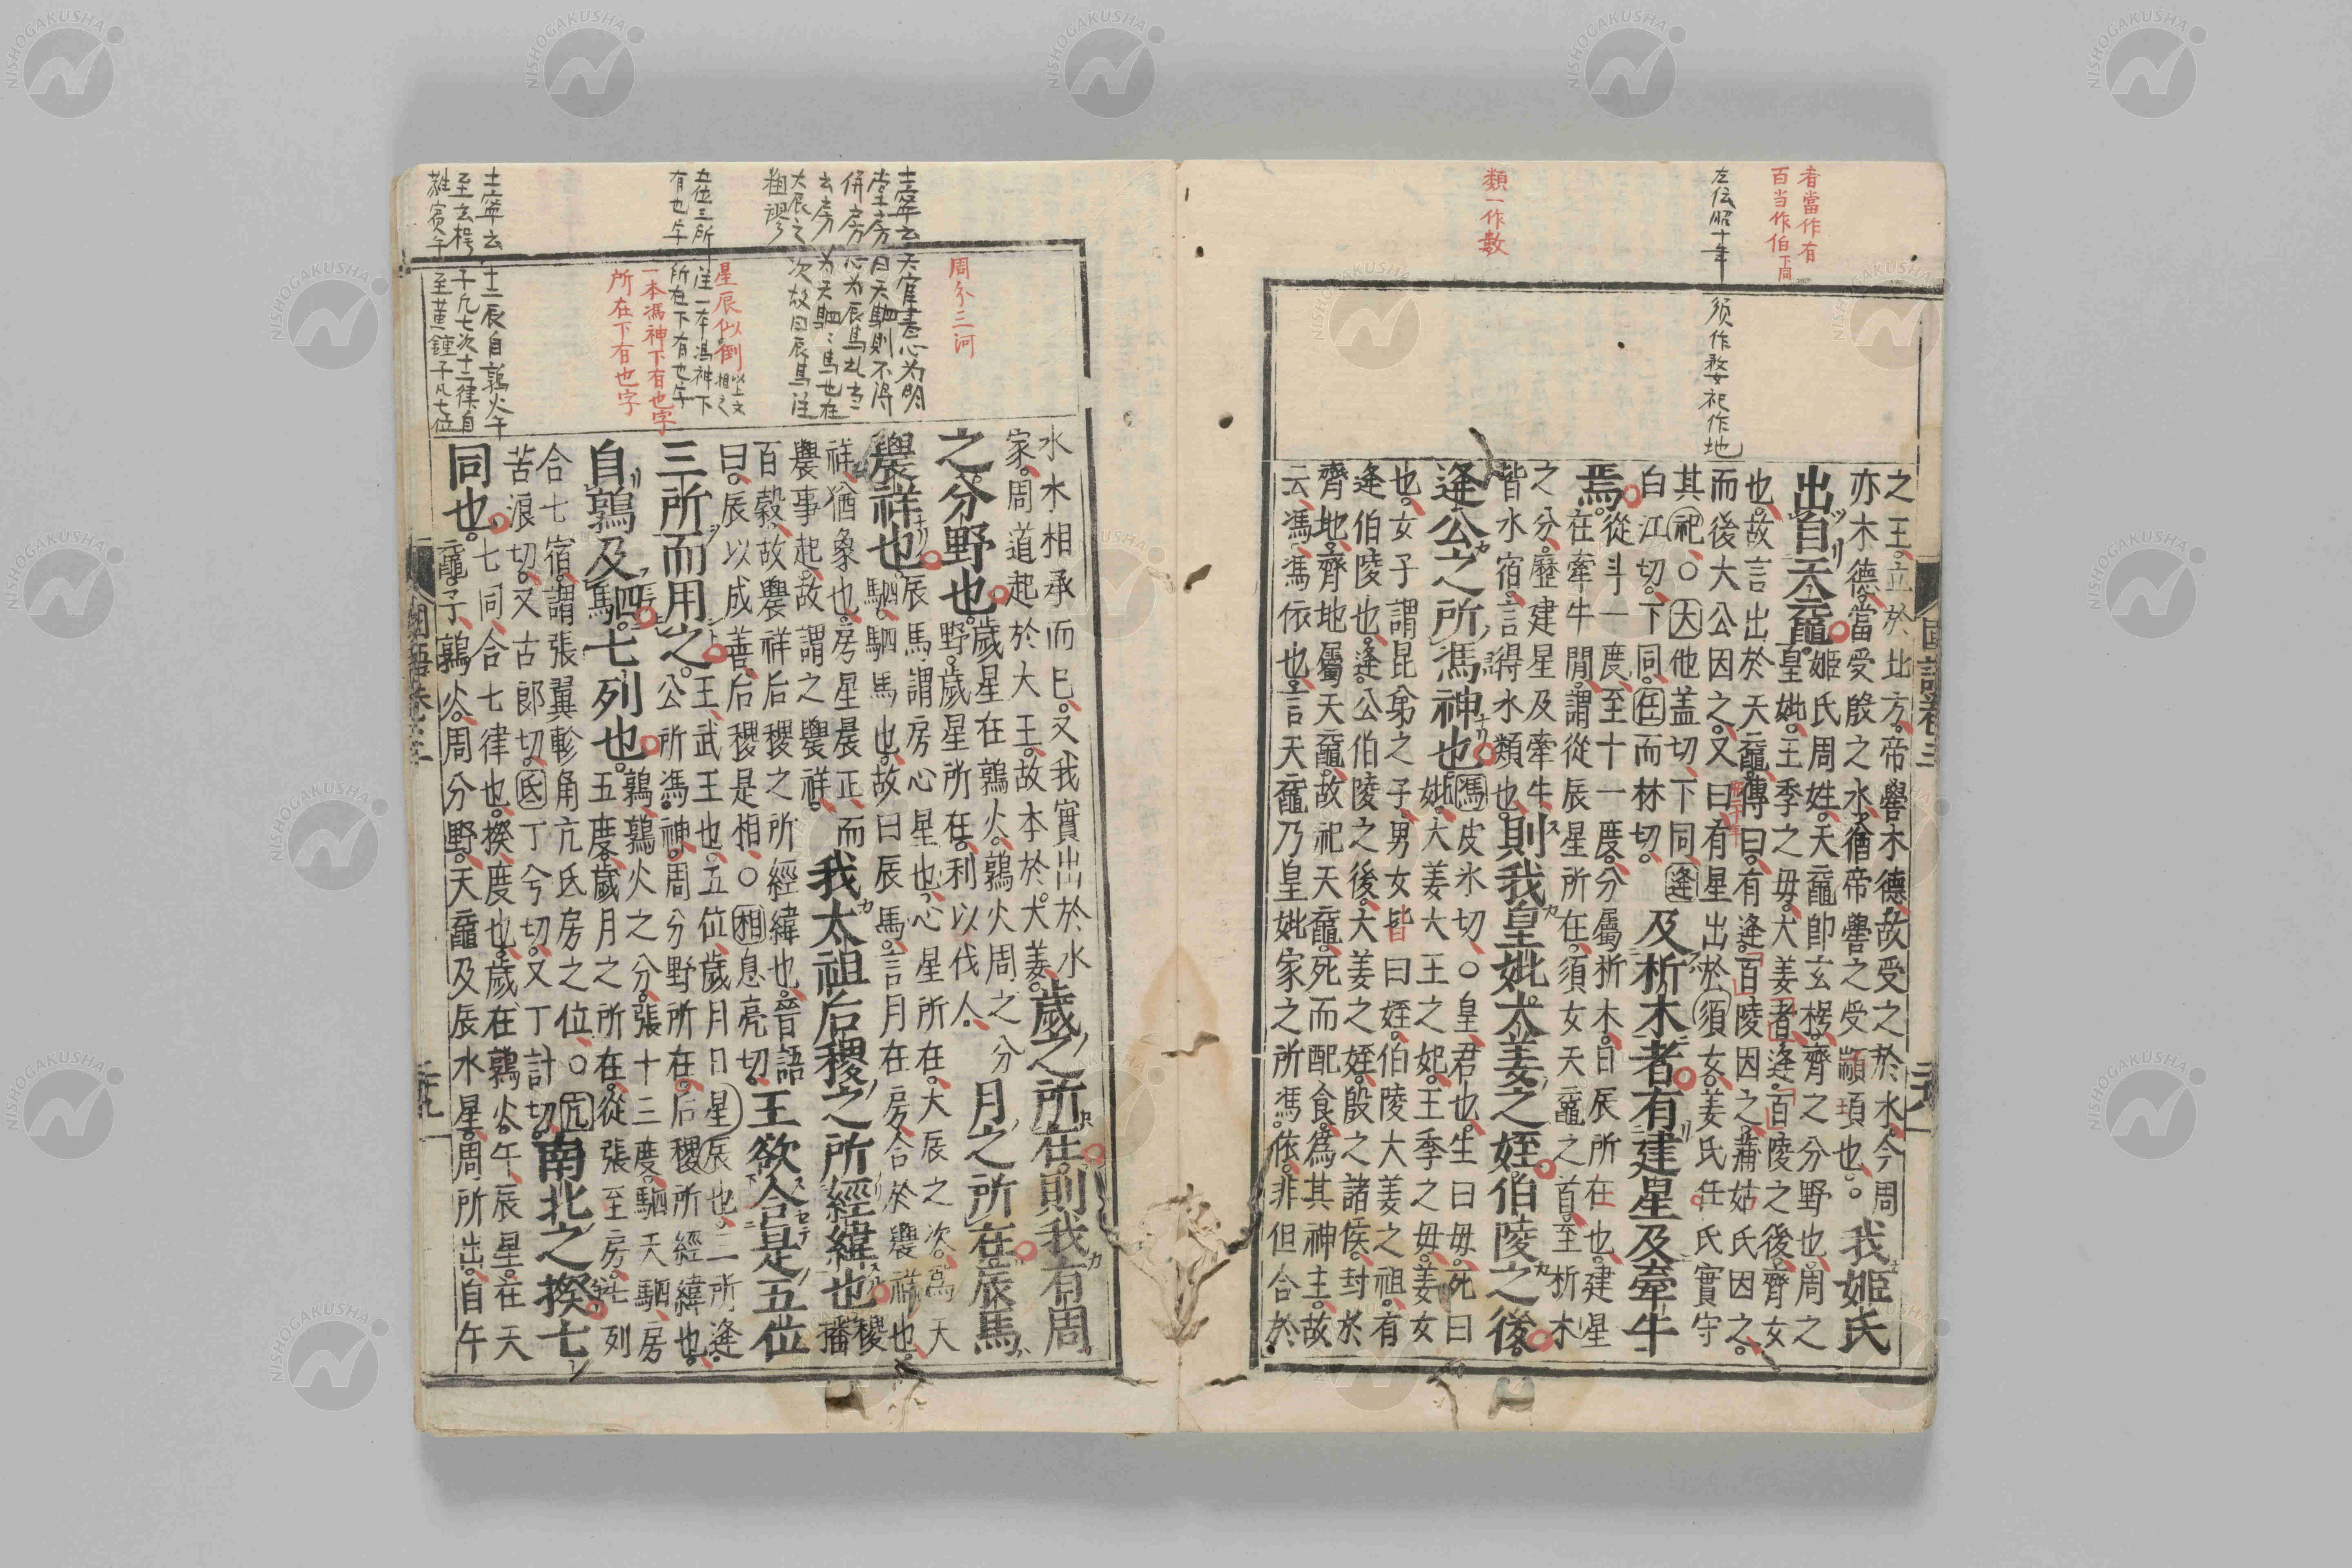 者當作有
百当作伯下同
左伝昭十年
須作婺祀作地
類一作數
國語卷三
之王。立於北方。帝嚳木德。故受之於水。今周
亦木德。當受殷之水。猶帝嚳之受顓頊也。
我姬氏
出自天黿。
姬氏周姓。天黿即玄枵。齊之分野也。周之
皇妣。王季之母。大姜者。逢百陵之後。齊女
也。故言出於天黿。傳曰。有逢百陵因之。蒲姑氏因之。
而後大公因之。又曰。有星出於須女。姜氏任氏實守
其祀。○大他盖切。下同。逢
白江切。下同。任而林切。
及析木者有建星及牽牛
焉。
從斗一度。至十一度。分屬析木。日辰所在也。建星
在牽牛閒。謂從辰星所在。須女天黿之首。至析木
之分。歷建星及牽牛。
皆水宿。言得水類也。
則我皇妣大姜之姪。伯陵之後。
逢公之所馮神也。
馮皮氷切。○皇君也。生曰母。死曰
妣。大姜大王之妃。王季之母。姜女
也。女子謂昆弟之子。男女皆曰姪。伯陵大姜之祖。有
逢伯陵也。逢公伯陵之後。大姜之姪。殷之諸侯。封於
齊地。齊地屬天黿。故祀天黿。死而配食。爲其神主。故
云馮。馮依也。言天黿乃皇妣家之所馮。依。非但合於
周分三河
士寧云天官書心為明
堂房曰天駟則不得
併房心为辰馬
云房為天駟馬也在
大辰之次故曰辰馬注
粗謬
星辰似倒
五位三所注一本馮神下
有也字所在下有也字
一本馮神下有也字
所在下有也字
士寧云十二辰自鶉火午
至玄枵子凡七次十二律自
蕤賓午至黄鍾子凡七位
水木相承而已。又我實出於水
家。周道起於大王。故本於大姜。
歲之所在。則我有周
之分野也。
歲星在鶉火。鶉火周之分
野。歲星所在。利以伐人。
月之所在辰馬
農祥也。
辰馬謂房心星也。心星所在。大辰之次。爲天
駟。駟馬也。故曰辰馬。言月在房。合於農祥也。
祥猶象也。房星晨正。而
農事起。故謂之農祥。
我太祖后稷之所經緯也
稷播
百穀。故農祥后稷之所經緯也。晉語
曰。辰以成善。后稷是相。○相息亮切。
王欲合是五位
三所而用之。
王武王也。五位歲月日星辰也。三所逢
公所馮神。周分野所在。后稷所經緯也。
自鶉及駟。七列也。
鶉鶉火之分。張十三度。駟天駟。房
五度。歲月之所在。從張至房。七列
合七宿。謂張翼軫角亢氐房之位。○亢
苦浪切。又古郎切。氐丁兮切。又丁計切。
南北之揆七
同也。
七同合七律也。揆度也。歲在鶉火。午。辰星在天
黿。子。鶉火。周分野。天黿及辰水星。周所出。自午
國語卷三
NISHOGAKUSHA